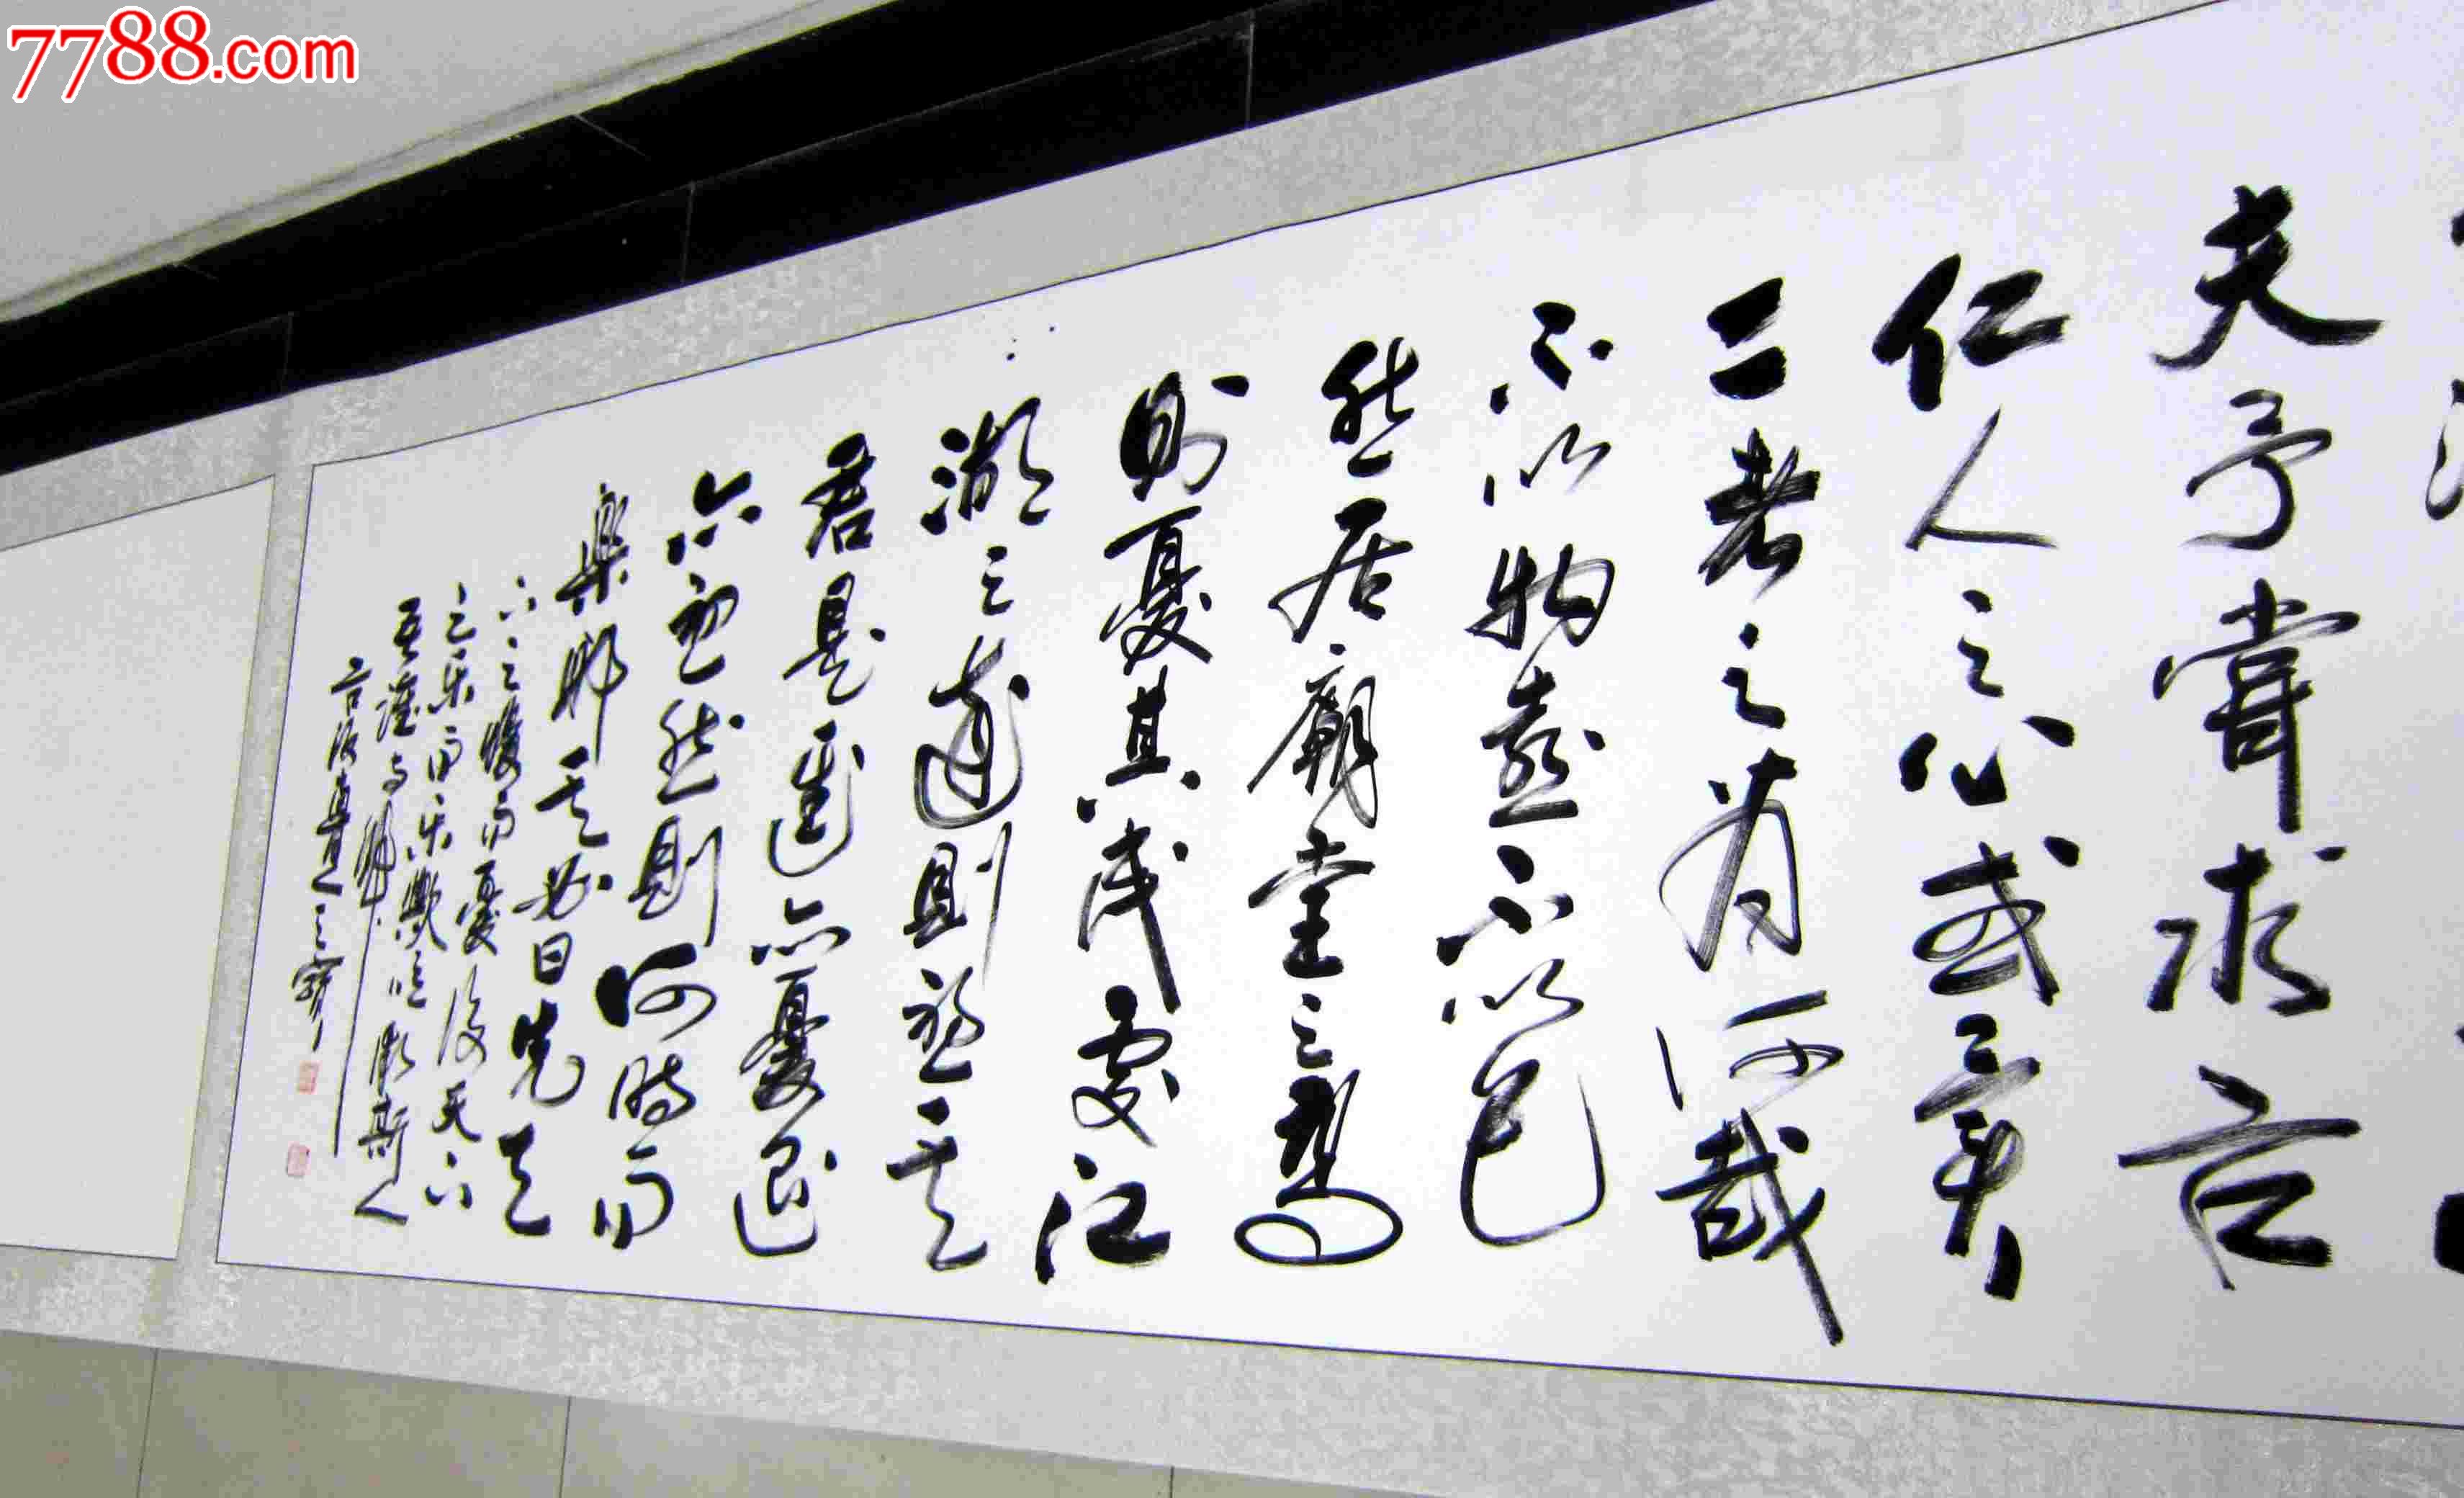 7788.com
夫予嘗求古
仁人之心或異
二者之為何哉
不以物喜不以己
悲居廟堂之高
則憂其民處江
湖之遠則憂其
君是進亦憂退
亦憂然則何時而
樂耶其必曰先天
下之憂而憂後天下
之乐而乐歟噫微斯人
吾誰与歸